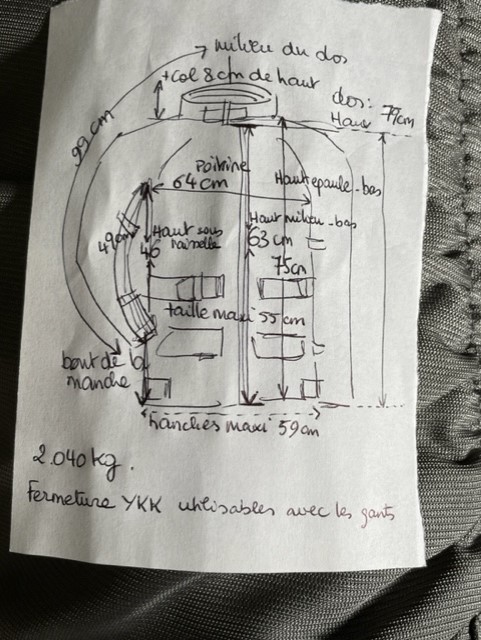 milieu du dos
+ Col 8cm de haut
dos: 77cm
Haut
99 cm
Poitrine
64 cm
Haut epaule - bas
49cm
Haut sous
aisselle
46
Haut milieu - bas
63 cm
75cm
taille maxi 55 cm
bout de la
manche
hanches maxi 59cm
2.040 kg.
Fermeture YKK utilisables avec les gants